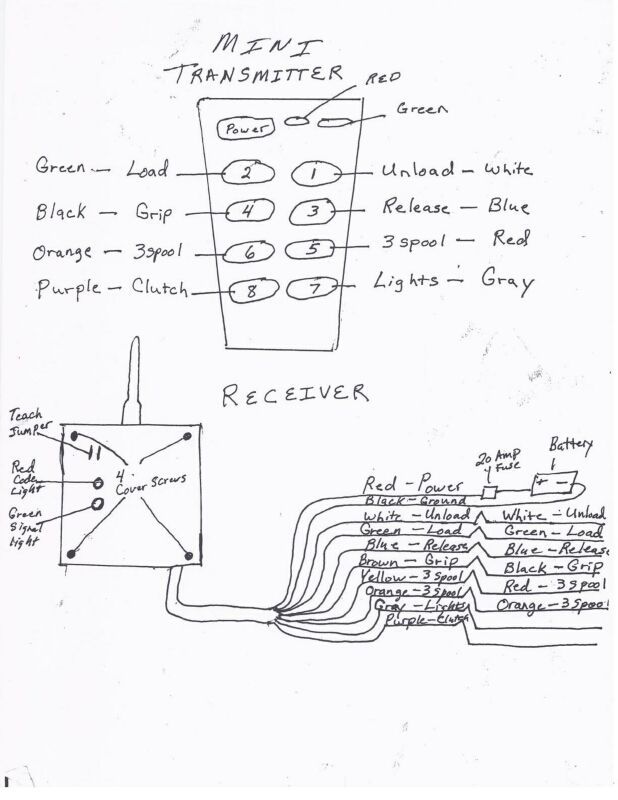 MINI
TRANSMITTER
RED
Green
Power
Green - Load 2 1 Unload - White
Black - Grip 4 3 Release - Blue
Orange - 3spool 6 5 3spool - Red
Purple - Clutch 8 7 Lights - Gray
RECEIVER
Teach
Jumper
Red
Code
Light
Green
Signal
Light
4
Cover Screws
20 Amp
Fuse
Battery
+ -
Red - Power
Black - Ground
White - Unload White - Unload
Green - Load Green - Load
Blue - Release Blue - Release
Brown - Grip Black - Grip
Yellow - 3 Spool Red - 3 Spool
Orange - 3 Spool Orange - 3 Spool
Gray - Lights
Purple - Clutch